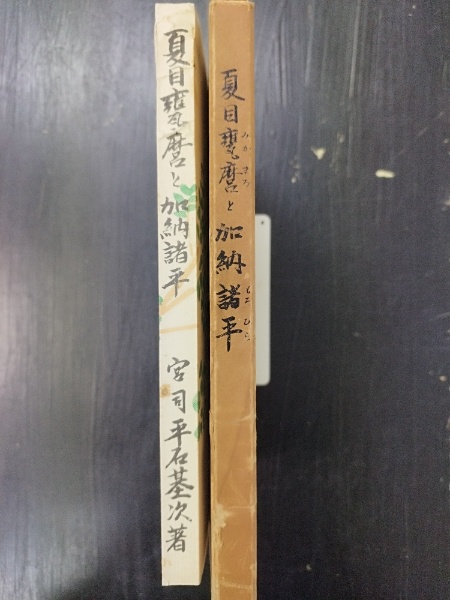 夏目甕麿と加納諸平 宮司平石基次著
夏目甕麿と加納諸平
みか まろ
もろ ひら